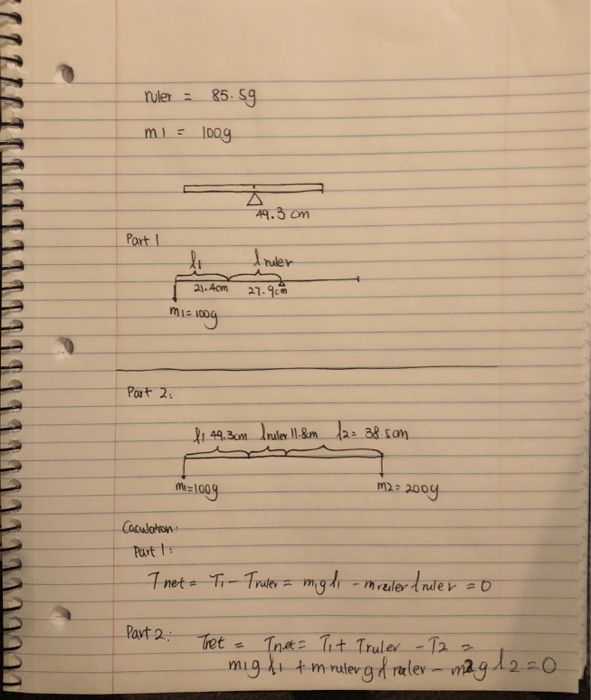 ruler = 85.5g
m1 = 100g
49.3 cm
Part 1
l1 lruler
21.4cm 27.9cm
m1=100g
Part 2:
l1 49.3cm lruler 11.8cm l2= 38.5cm
m1=100g m2=200g
Caculation:
Part 1:
Tnet = T1 - Truler = m1gl1 - mruler lruler = 0
Part 2: Tnet = Tnet= T1+ Truler - T2 =
m1gl1 + mruler g lruler - m2gl2=0